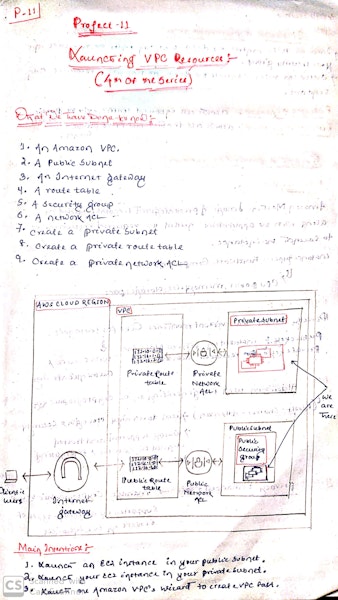 P-11
Project-11
Launching VPC Resources:-
(4th of the series)
What we have done to now:-
1. An Amazon VPC.
2. A Public Subnet
3. An Internet gateway
4. A route table
5. A security group
6. A network ACL
7. Create a private Subnet
8. Create a private route table
9. Create a private network ACL
AWS CLOUD REGION
VPC
Private Subnet
Private Route
table
Private
Network
ACL
we
are
here
Public Subnet
Public
Security
group
Internet
gateway
Public Route
table
Public
Network
ACL
users
Main Intentions:-
1. Launch an EC2 instance in your public subnet.
2. Launch your EC2 instance in your private subnet.
3. Launch the Amazon VPC's wizard to create VPC fast.
CS